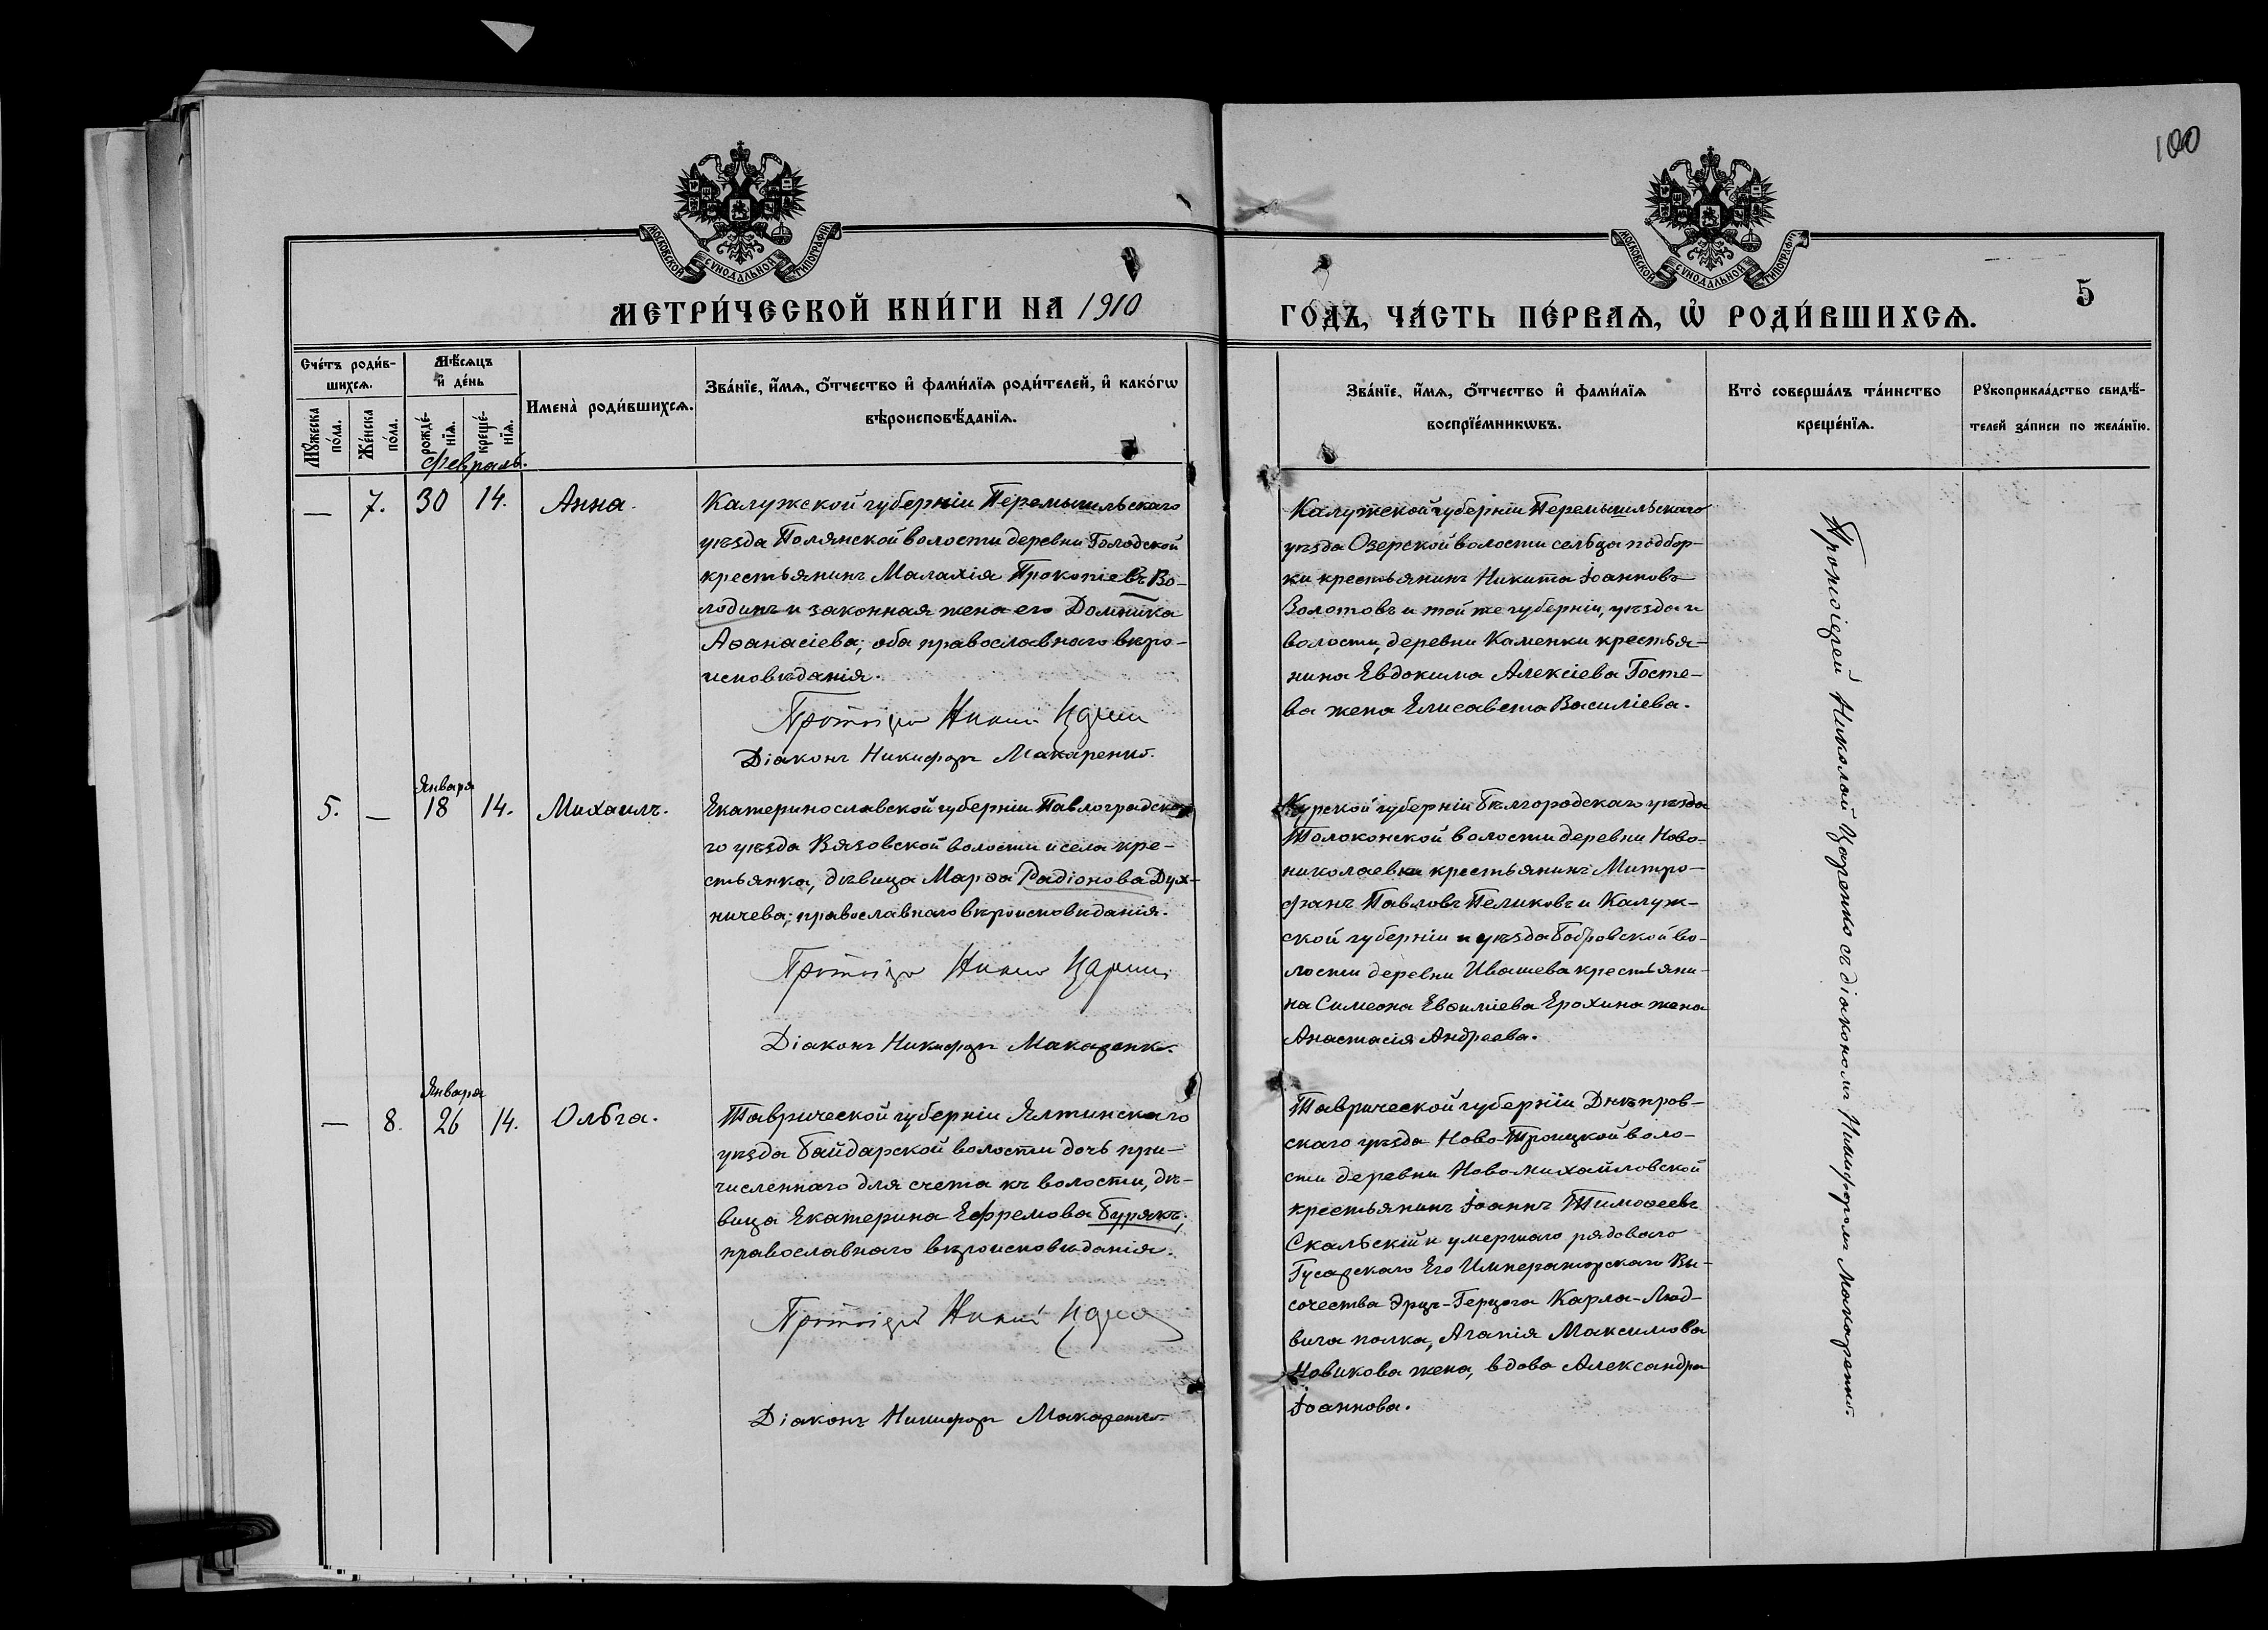 100
МОСКОВСКОЙ СѴНОДАЛЬНОЙ ТИПОГРАФІИ
МОСКОВСКОЙ СѴНОДАЛЬНОЙ ТИПОГРАФІИ
5
МЕТРИ́ЧЕСКОЙ КНИ́ГИ НА 1910
ГОДЪ, ЧА́СТЬ ПЕ́РВАѦ, Ѡ҆ РОДИ́ВШИХСѦ.
Сче́тъ роди́в-
шихсѧ.
Мѣ́сѧцъ
и҆ де́нь
Имена̀ роди́вшихсѧ.
Зва́нїе, и҆́мѧ, ѻ҆́тчество и҆ фами́лїѧ роди́телей, и҆ како́гѡ
вѣроисповѣ́данїѧ.
Мꙋ́жеска
по́ла.
Же́нска
по́ла.
рожде́-
нїѧ.
креще́-
нїѧ.
Зва́нїе, и҆́мѧ, ѻ҆́тчество и҆ фами́лїѧ
воспрїе́мникѡвъ.
Кто̀ соверша́лъ та́инство
креще́нїѧ.
Рꙋкоприкла́дство свидѣ́-
телей за́писи по жела́нїю.
Февраль.
— 7. 30 14. Анна.
Калужской губерніи Перемышльскаго
уѣзда Полянской волости деревни Голодской
крестьянинъ Малахія Прокопіевъ Во-
лодинъ и законная жена его Домника
Аѳанасіева; оба православнаго вѣро-
исповѣданія.
Діаконъ Никифоръ Макаренко.
Калужской губерніи Перемышльскаго
уѣзда Озерской волости сельца подбор-
ки крестьянинъ Никита Іоанновъ
Золотовъ и той же губерніи, уѣзда и
волости, деревни Каменки крестья-
нина Евдокима Алексіева Госте-
ва жена Елисавета Василіева.
Января
5. — 18 14. Михаилъ.
Екатеринославской губерніи Павлоградска-
го уѣзда Вязовской волости и села кре-
стьянка, дѣвица Марѳа Радіонова Дух-
ничева; православнаго вѣроисповѣданія.
Діаконъ Никифоръ Макаренко.
Курской губерніи Бѣлгородскаго уѣзда
Толоконской волости деревни Ново-
николаевки крестьянинъ Митро-
фанъ Павловъ Пеликовъ и Калуж-
ской губерніи и уѣзда Бобровской во-
лости деревни Ивашева крестьяни-
на Симеона Евѳиміева Ерохина жена
Анастасія Андреева.
Января
— 8. 26 14. Ольга.
Таврической губерніи Ялтинскаго
уѣзда Байдарской волости дочь при-
численнаго для счета къ волости, дѣ-
вица Екатерина Ефремова Бурякъ;
православнаго вѣроисповѣданія.
Діаконъ Никифоръ Макаренко
Таврической губерніи Днѣпров-
скаго уѣзда Ново-Троицкой воло-
сти деревни Новомихайловской
крестьянинъ Іоаннъ Тимоѳеевъ
Скальскій и умершаго рядоваго
Гусарскаго Его Императорскаго Вы-
сочества Эрцъ-Герцога Карла-Люд-
вига полка, Агапія Максимова
Новикова жена, вдова Александра
Іоаннова.
Протоіерей Николай Царенко съ діакономъ Никифоромъ Макаренко.